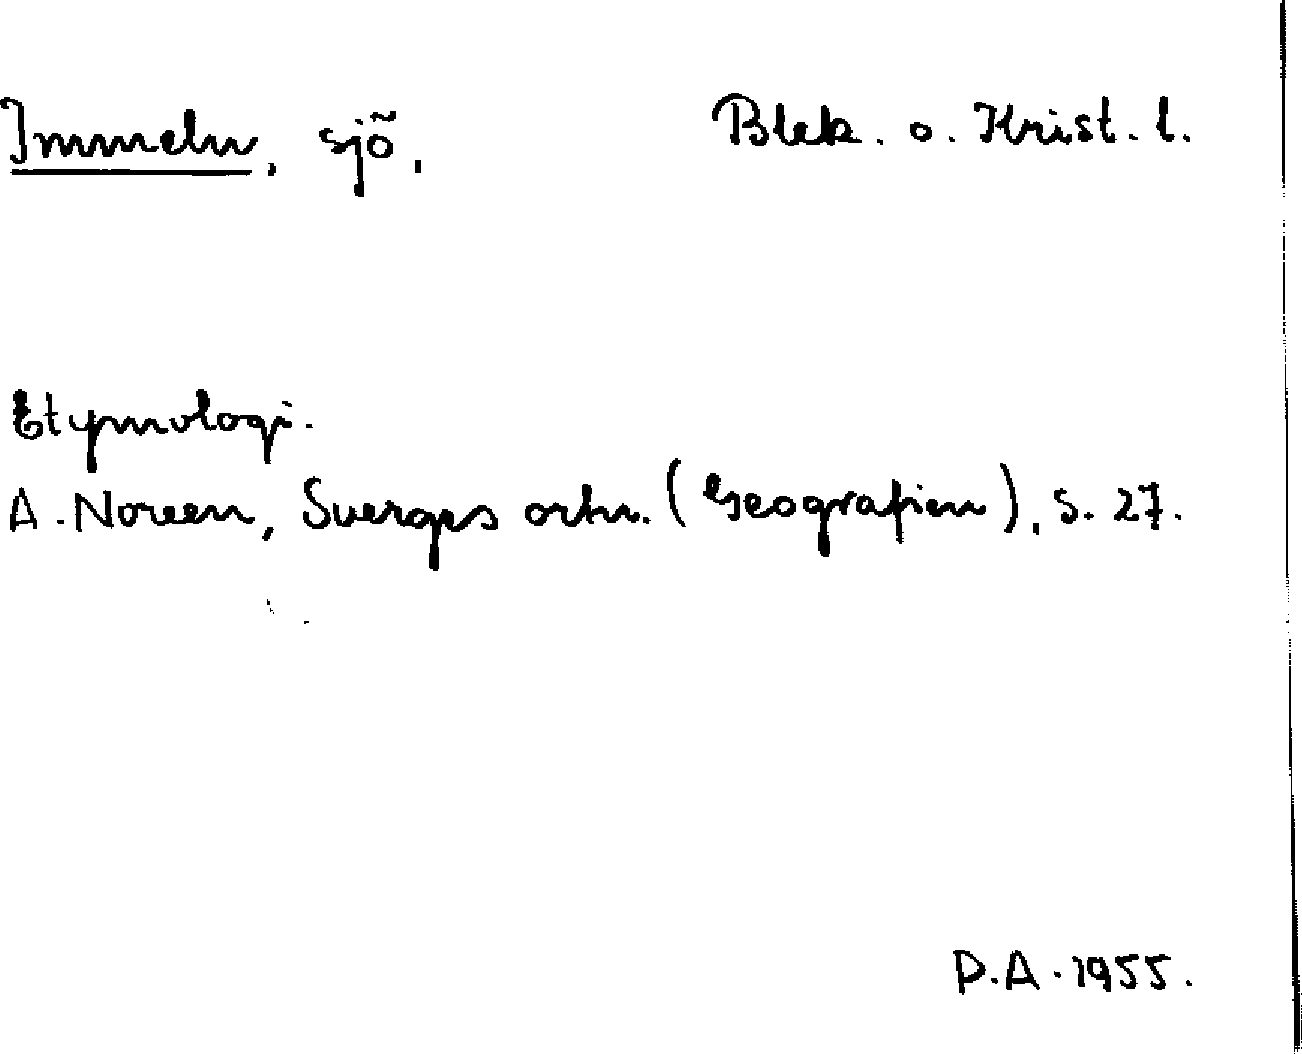 Immeln, sjö. Blek. o. Krist. l.
Etymologi.
A. Noreen, Sverges ortn. (Geografien), s. 27.
D.A. 1955.